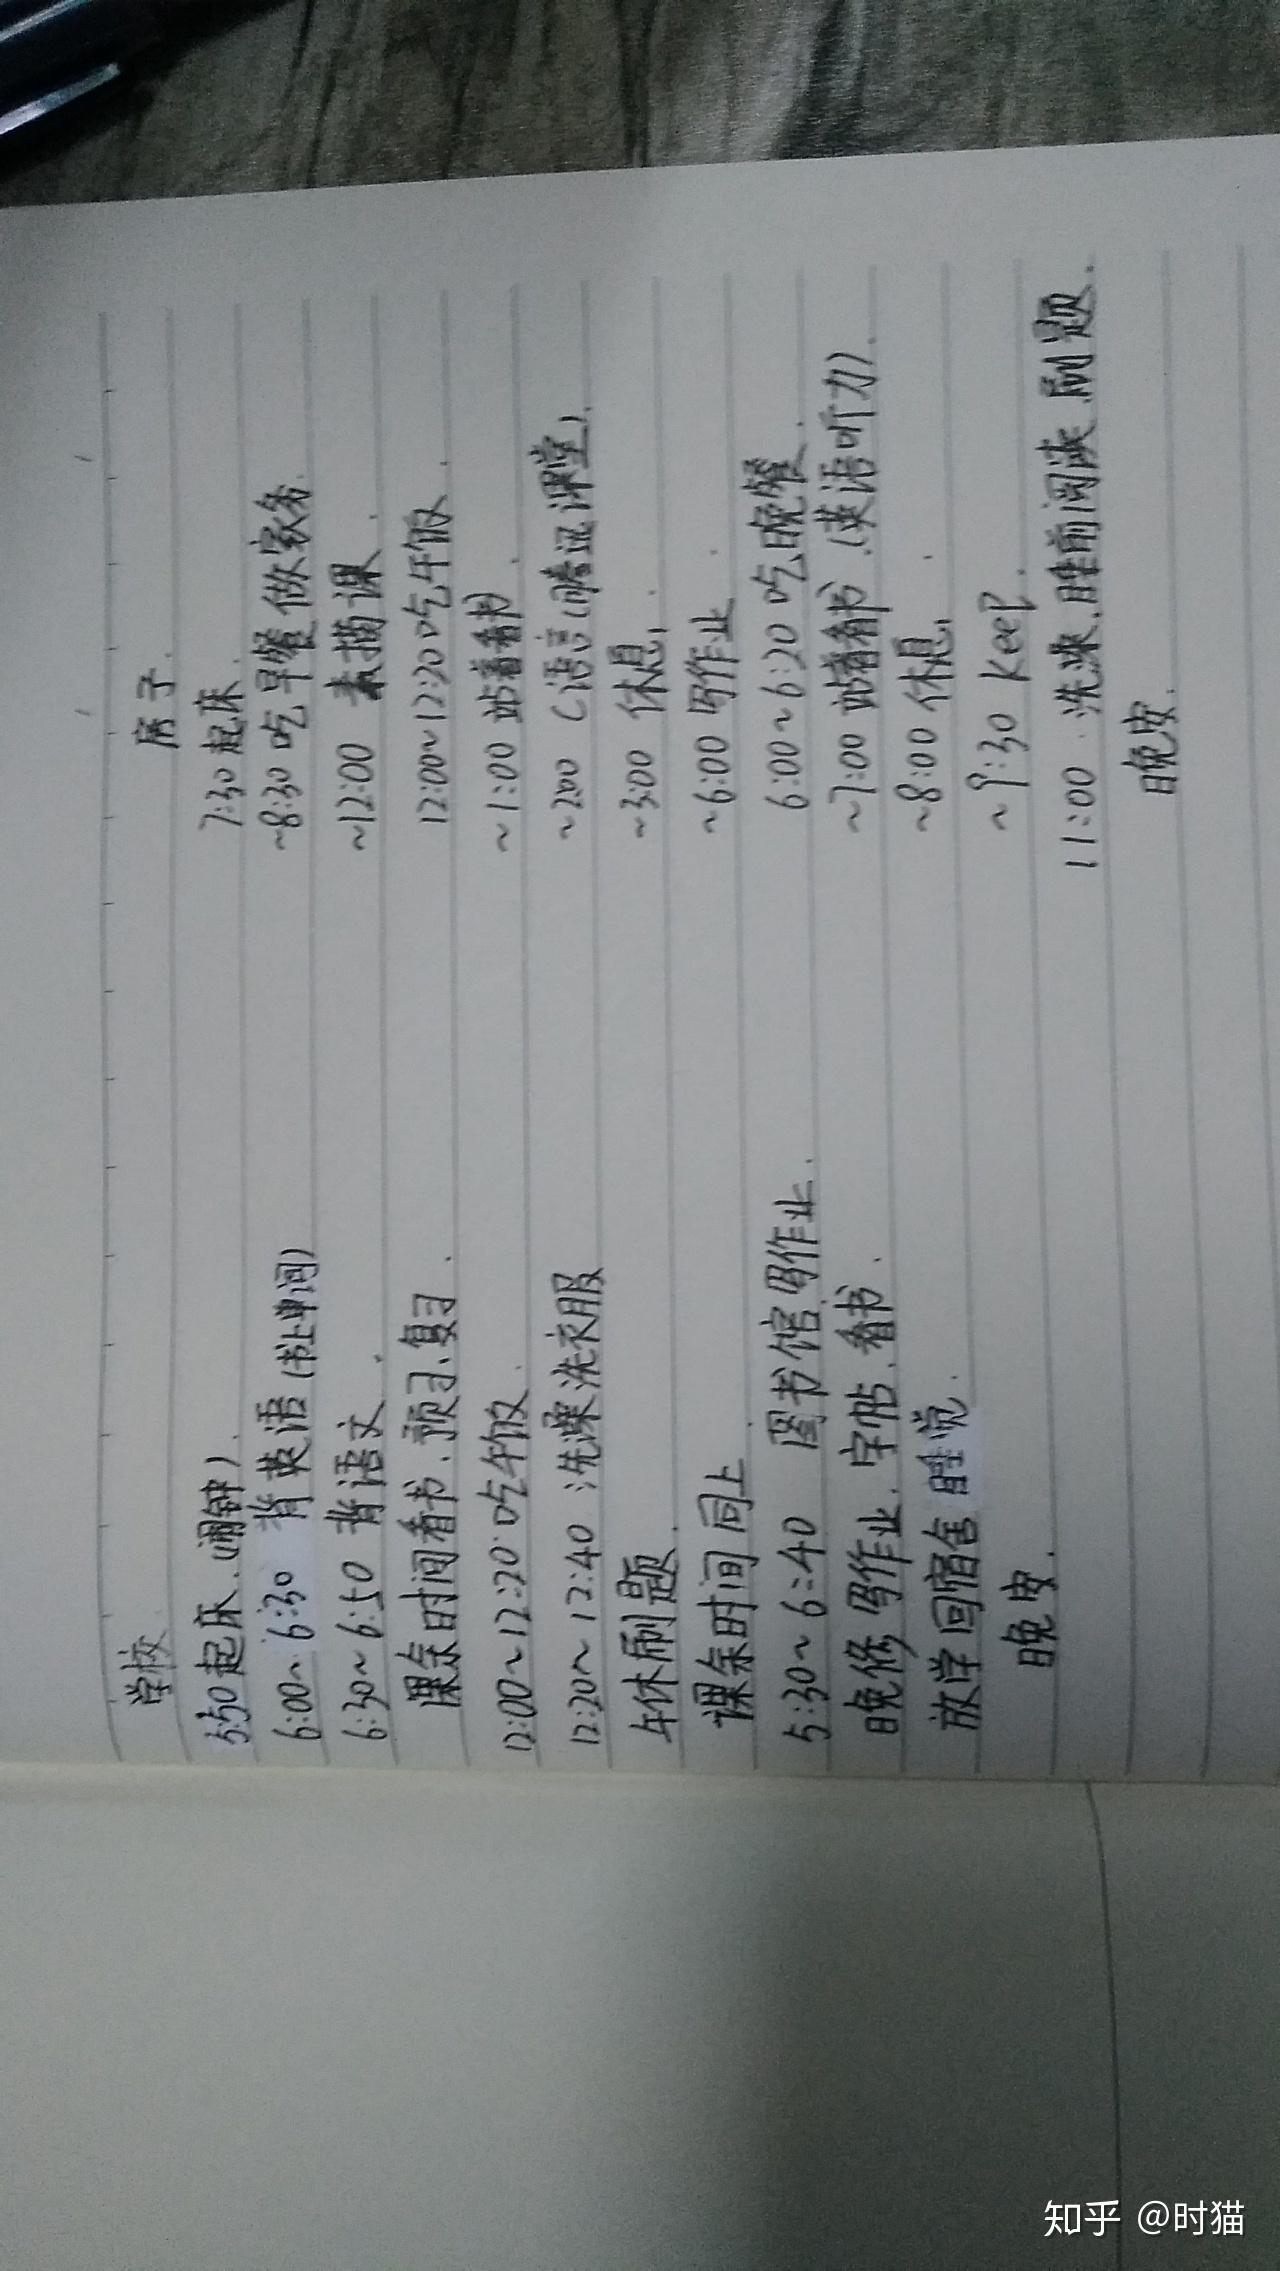 学校
5:50 起床.(闹钟).
6:00~6:30 背英语(书上单词)
6:30~6:50 背语文.
课余时间看书.预习.复习.
12:00~12:20 吃午饭.
12:20~12:40 洗澡洗衣服
午休刷题.
课余时间 同上
5:30~6:40 图书馆写作业.
晚修,写作业.字帖.看书.
放学回宿舍 睡觉.
晚安.
房子.
7:30 起床.
~8:30 吃早餐 做家务.
~12:00 素描课.
12:00~12:20 吃午饭.
~1:00 站着看书.
~2:00 C语言(腾讯课堂).
~3:00 休息.
~6:00 写作业.
6:00~6:20 吃晚餐.
~7:00 站着看书.(英语听力).
~8:00 休息.
~9:30 keep.
11:00.洗澡.睡前阅读.刷题.
晚安.
知乎 @时猫